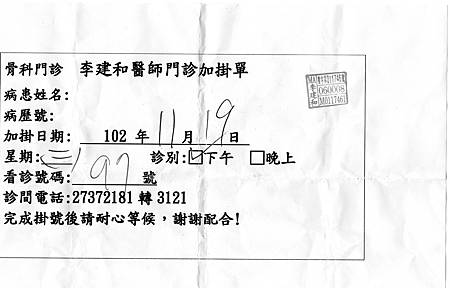 骨科門診 李建和醫師門診加掛單
李建和
060008
MD117461
病患姓名:
病歷號:
加掛日期: 102 年 11 月 19 日
星期: 三 診別: ☑下午 □晚上
看診號碼: 97 號
診間電話:27372181 轉 3121
完成掛號後請耐心等候,謝謝配合!